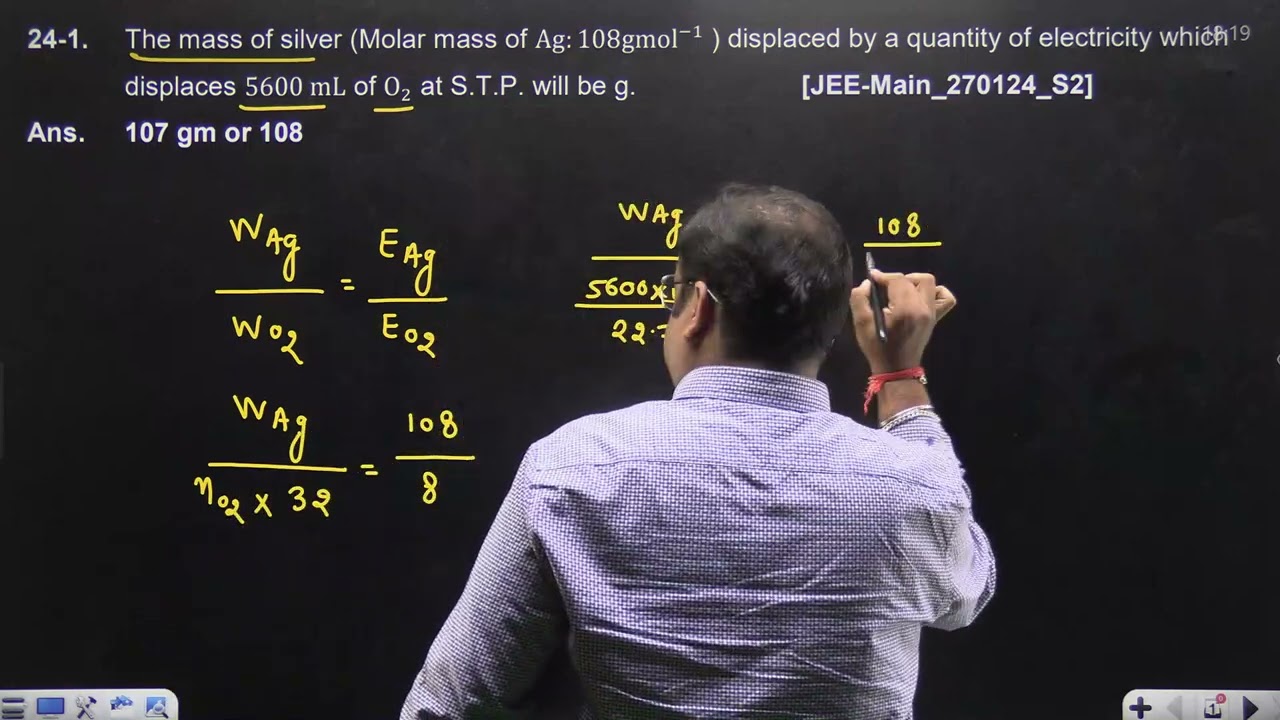 24-1. The mass of silver (Molar mass of Ag: 108gmol⁻¹ ) displaced by a quantity of electricity which
18:19
displaces 5600 mL of O₂ at S.T.P. will be g. [JEE-Main_270124_S2]
Ans. 107 gm or 108
W_Ag / W_O₂ = E_Ag / E_O₂
W_Ag / n_O₂ × 32 = 108 / 8
W_Ag
5600 ×
22.
108
1